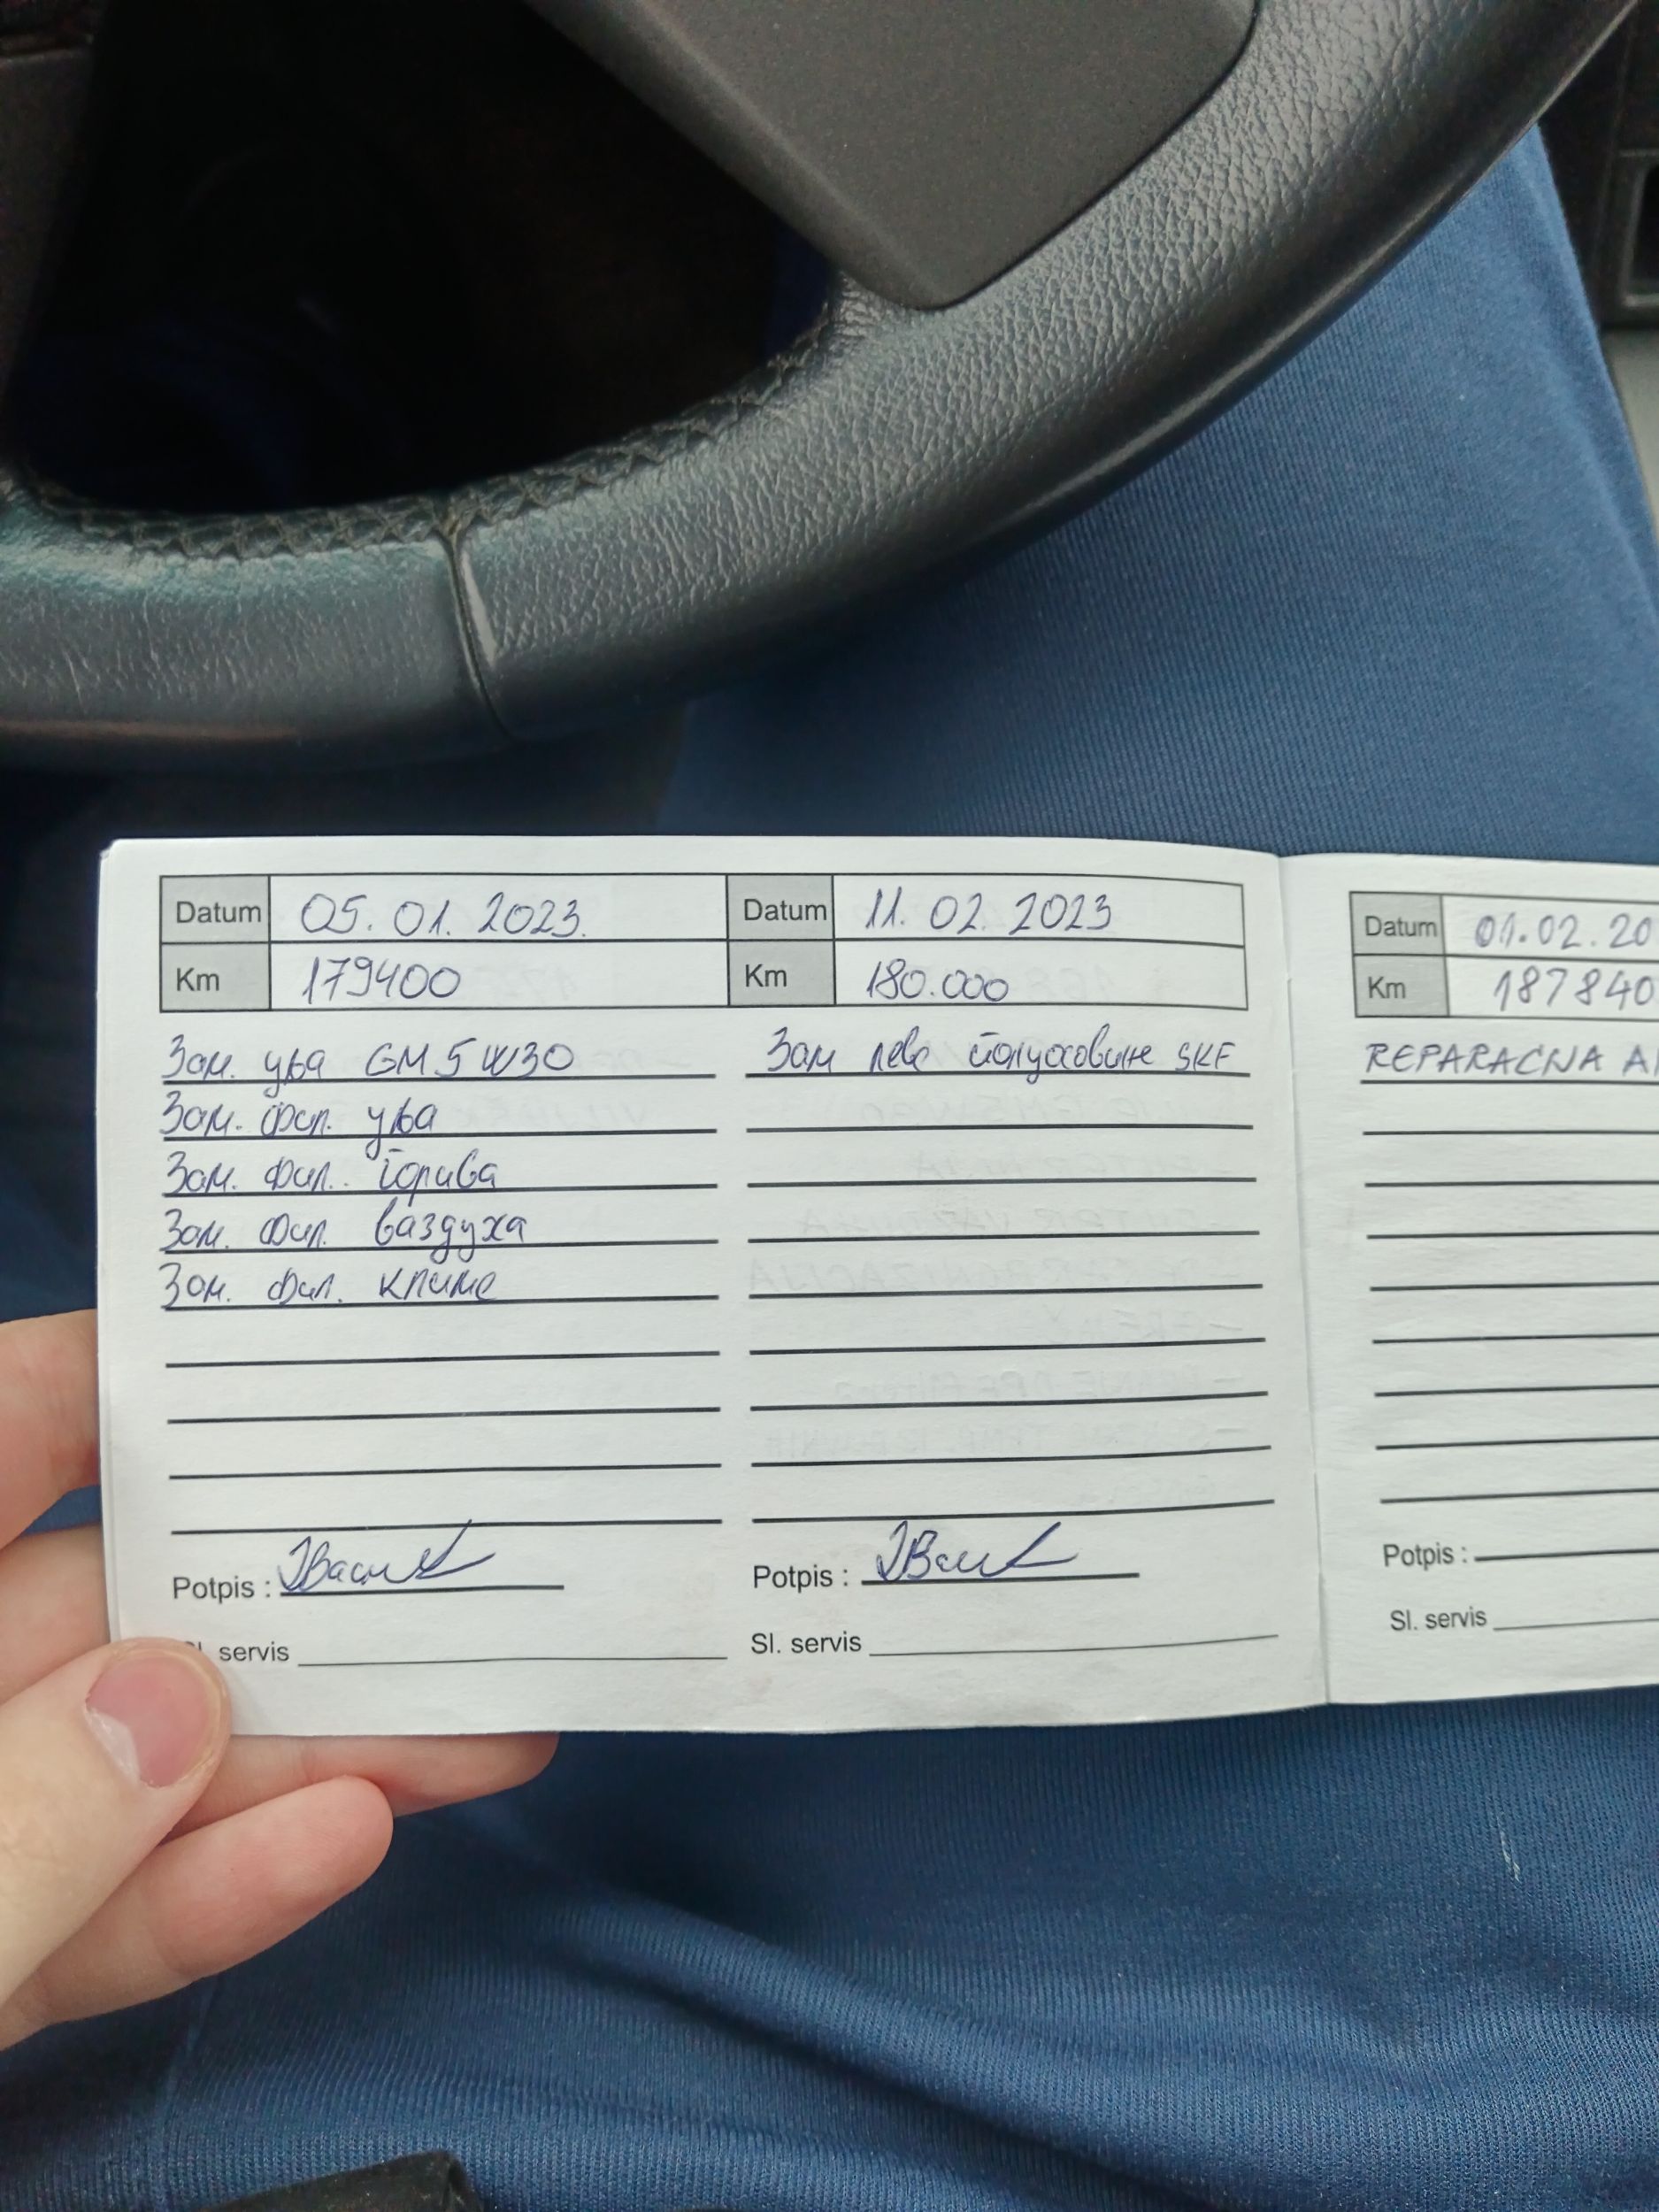 Datum 05.01.2023.
Km 179400
Зам. уља GM 5W30
Зам. фил. уља
Зам. фил. горива
Зам. фил. ваздуха
Зам. фил. климе
Potpis :
Sl. servis
Datum 11.02.2023
Km 180.000
Зам леве полуосовине SKF
Potpis :
Sl. servis
Datum 01.02.20
Km 187840
REPARACIJA A
Potpis :
Sl. servis